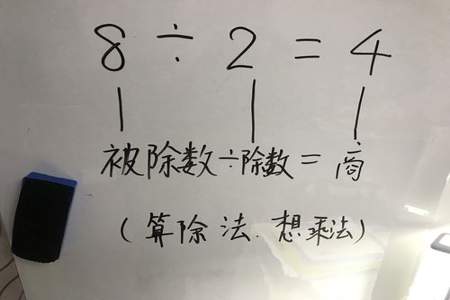 8 ÷ 2 = 4
被除数÷除数=商
(算除法.想乘法)